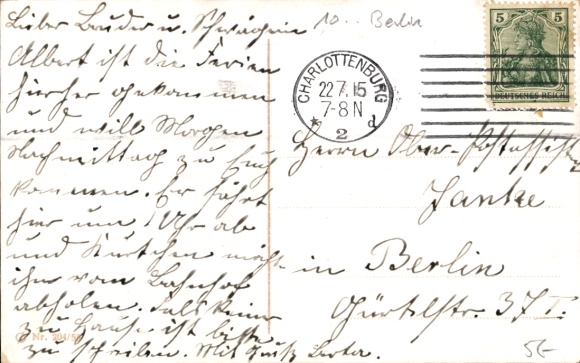 Lieber Bruder u. Schwägerin
Albert ist die Ferien
hierher gekommen
und will Morgen
Nachmittag zu Euch
kommen. Er fährt
hier um 1 Uhr ab
und möcht
ihn vom Bahnhof
abholen. Falls keiner
zu Hause ist bitte
zu schreiben. Mit Gruß
10... Berlin
5 5
DEUTSCHES REICH
CHARLOTTENBURG
22.7.15
7-8 N
* 2 d
Herrn Ober-Postassistent
Janke
in Berlin
Gürtelstr. 37 I.
Nr.
5-